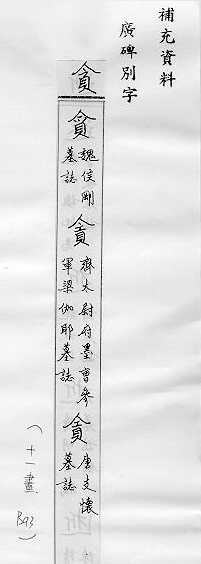 補充資料
廣碑別字
貪
貪
魏侯剛
墓誌
貪
齊太尉府墨曹參
軍梁伽耶墓誌
貪
唐支懷
墓誌
(十一畫 B93)